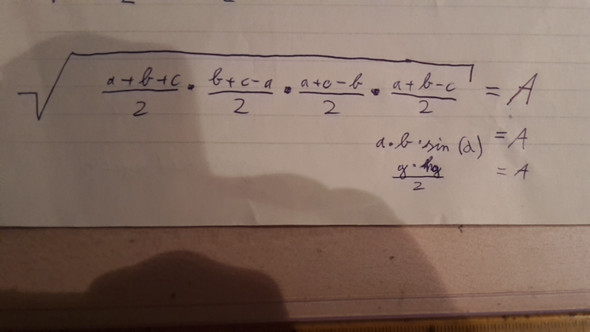 √(a+b+c/2 · b+c-a/2 · a+c-b/2 · a+b-c/2) = A
a·b·sin(α) = A
g·hg/2 = A